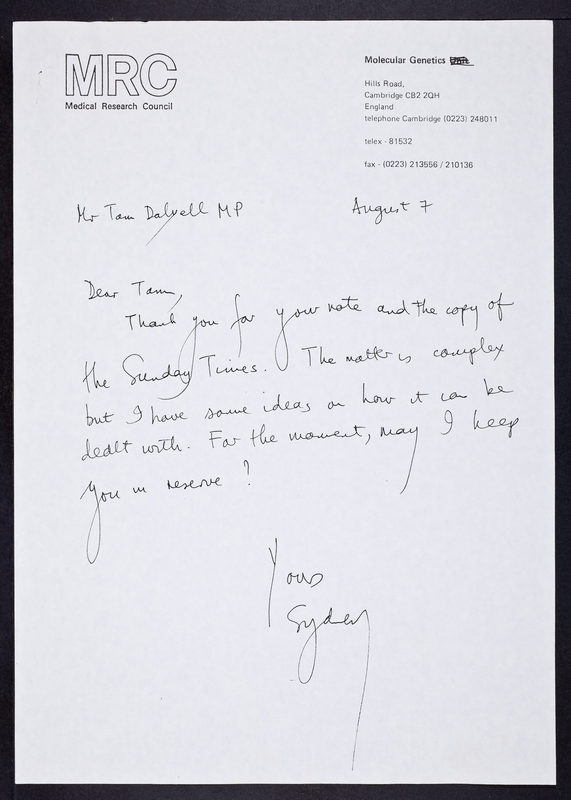 MRC
Medical Research Council
Molecular Genetics
Hills Road,
Cambridge CB2 2QH
England
telephone Cambridge (0223) 248011
telex - 81532
fax - (0223) 213556 / 210136
Mr Tam Dalyell MP
August 7
Dear Tam,
Thank you for your note and the copy of
the Sunday Times. The matter is complex
but I have some ideas on how it can be
dealt with. For the moment, may I keep
you in reserve?
Yours
Sydney